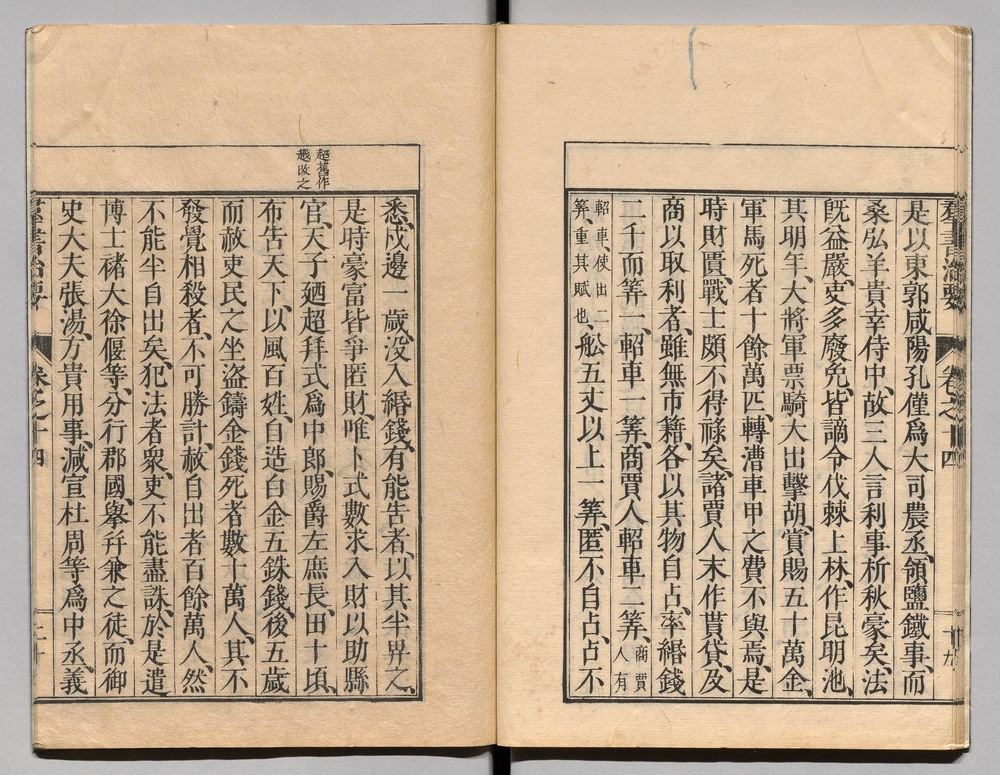 是以東郭咸陽孔僅爲大司農丞、領鹽鐵事、而
桑弘羊貴幸侍中、故三人言利事析秋豪矣、法
既益嚴、吏多廢免、皆謫令伐棘上林、作昆明池、
其明年、大將軍票騎大出擊胡、賞賜五十萬金、
軍馬死者十餘萬匹、轉漕車甲之費不與焉、是
時財匱、戰士頗不得祿矣、諸賈人末作貰貸、及
商以取利者、雖無市籍、各以其物自占、率緡錢
二千而筭一、軺車一筭、商賈人軺車二筭、商賈人有
軺車、使出二筭、重其賦也、舩五丈以上一筭、匿不自占、占不
群書治要 卷之十四 十九
超舊作越改之
悉、戍邊一歲、沒入緡錢、有能告者、以其半畀之、
是時豪富皆爭匿財、唯卜式數求入財以助縣
官、天子廼超拜式爲中郎、賜爵左庶長、田十頃、
布告天下、以風百姓、自造白金五銖錢後五歲
而赦吏民之坐盜鑄金錢死者數十萬人、其不
發覺相殺者、不可勝計、赦自出者百餘萬人、然
不能半自出矣、犯法者衆、吏不能盡誅、於是遣
博士褚大徐偃等、分行郡國、擧幷兼之徒、而御
史大夫張湯、方貴用事、減宣杜周等爲中丞、義
群書治要 卷之十四 二十